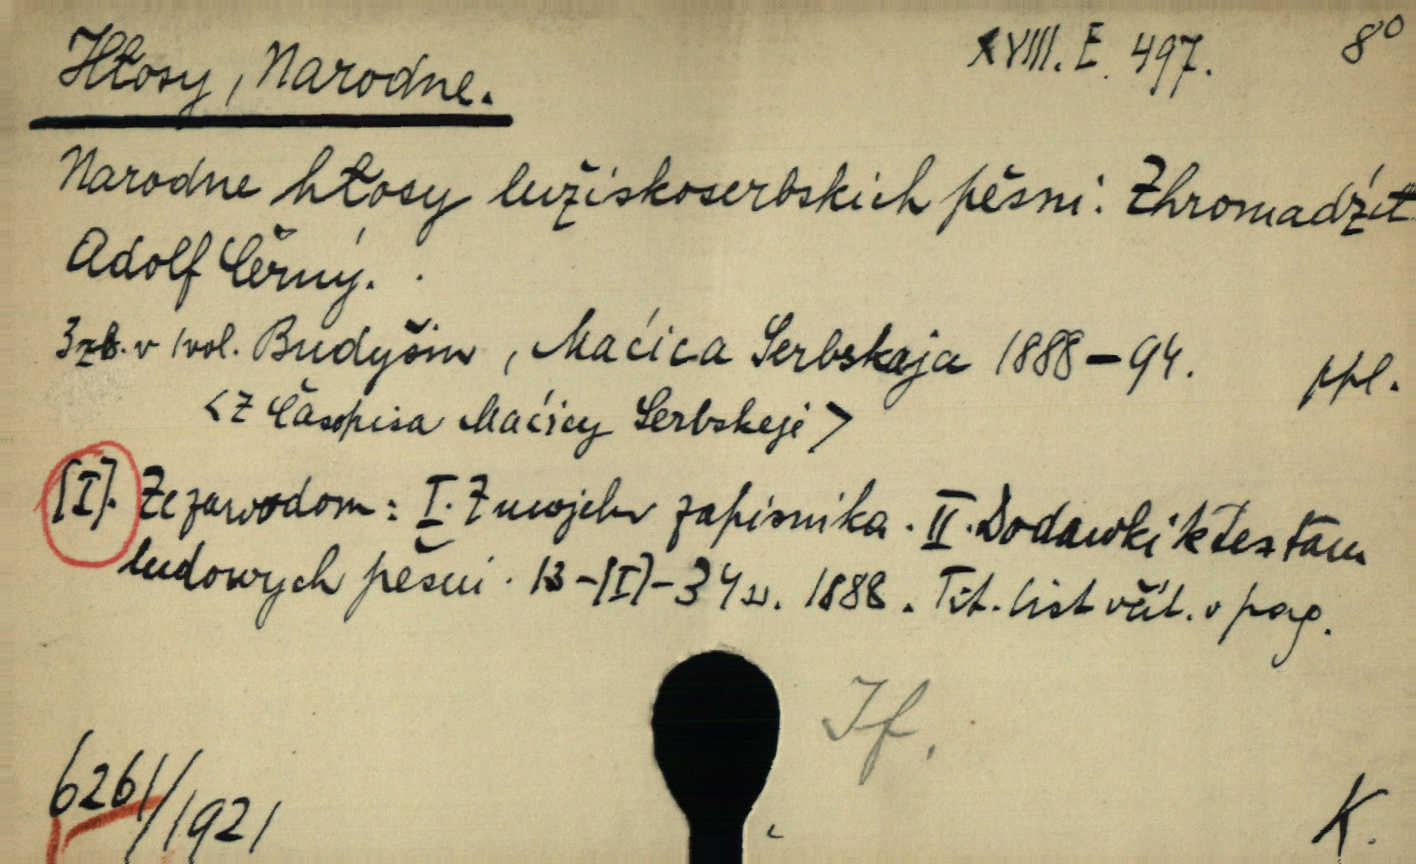 Hłosy, Narodne.
XVIII. E. 497.
8°
Narodne hłosy łužiskoserbskich pěsni. Zhromadźił
Adolf Černý.
3 zb. v 1 vol. Budyšin, Maćica Serbskaja 1888-94. ppl.
<Z Časopisa Maćicy Serbskeje>
[I]. Ze zawodom: I. Z mojeho zapisnika. II. Dodawki k tekstam
ludowych pěsni. 13-[I]-34 s. 1888. Tit. list včít. v pag.
If.
6261/1921
K.